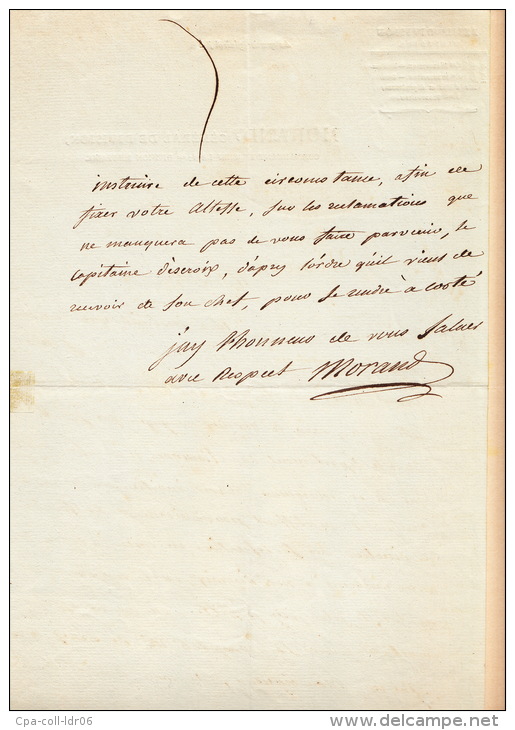 instruire de cette circonstance, afin de
fixer votre Altesse, sur les reclamations que
ne manquera pas de vous faire parvenir, le
Capitaine d'escroix, d'apres l'ordre qu'il vient de
recevoir de son chef, pour se rendre à corté
j'ay l'honneur de vous saluer
avec Respect Morand
Cpa-coll-ldr06
www.delcampe.net